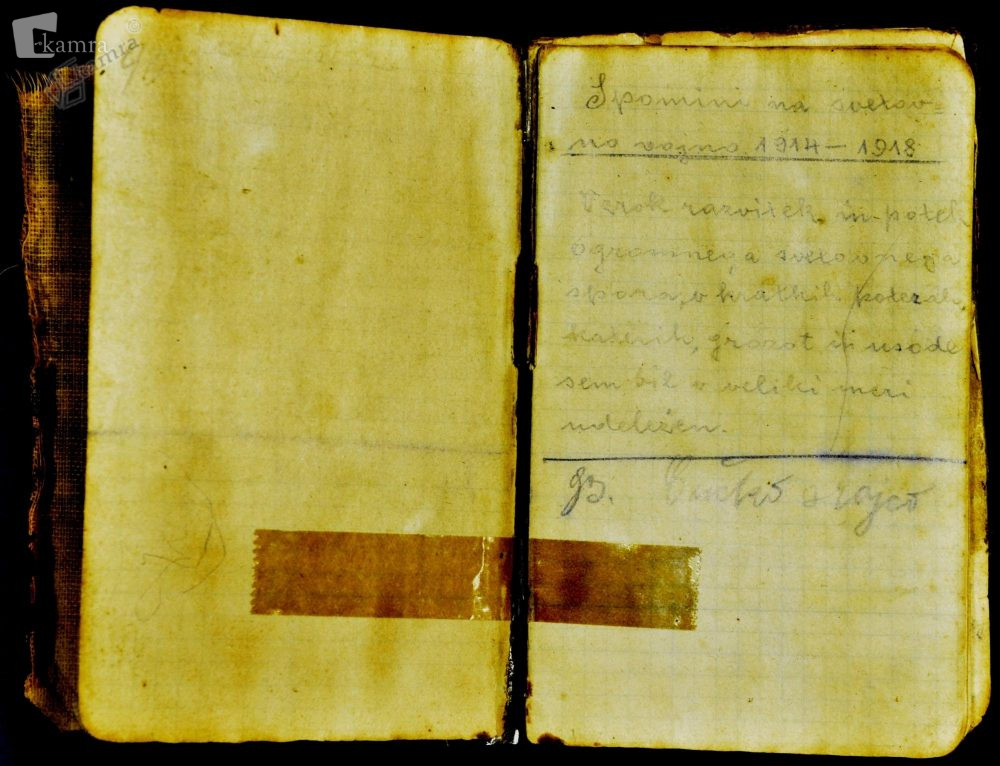 kamra
kamra
Spomini na svetov=
no vojno 1914 – 1918
Vzrok razvitek in potek
ogromnega svetovnega
spora, v kratkih potezah
katerih, grozot in usode
sem bil v veliki meri
udeležen.